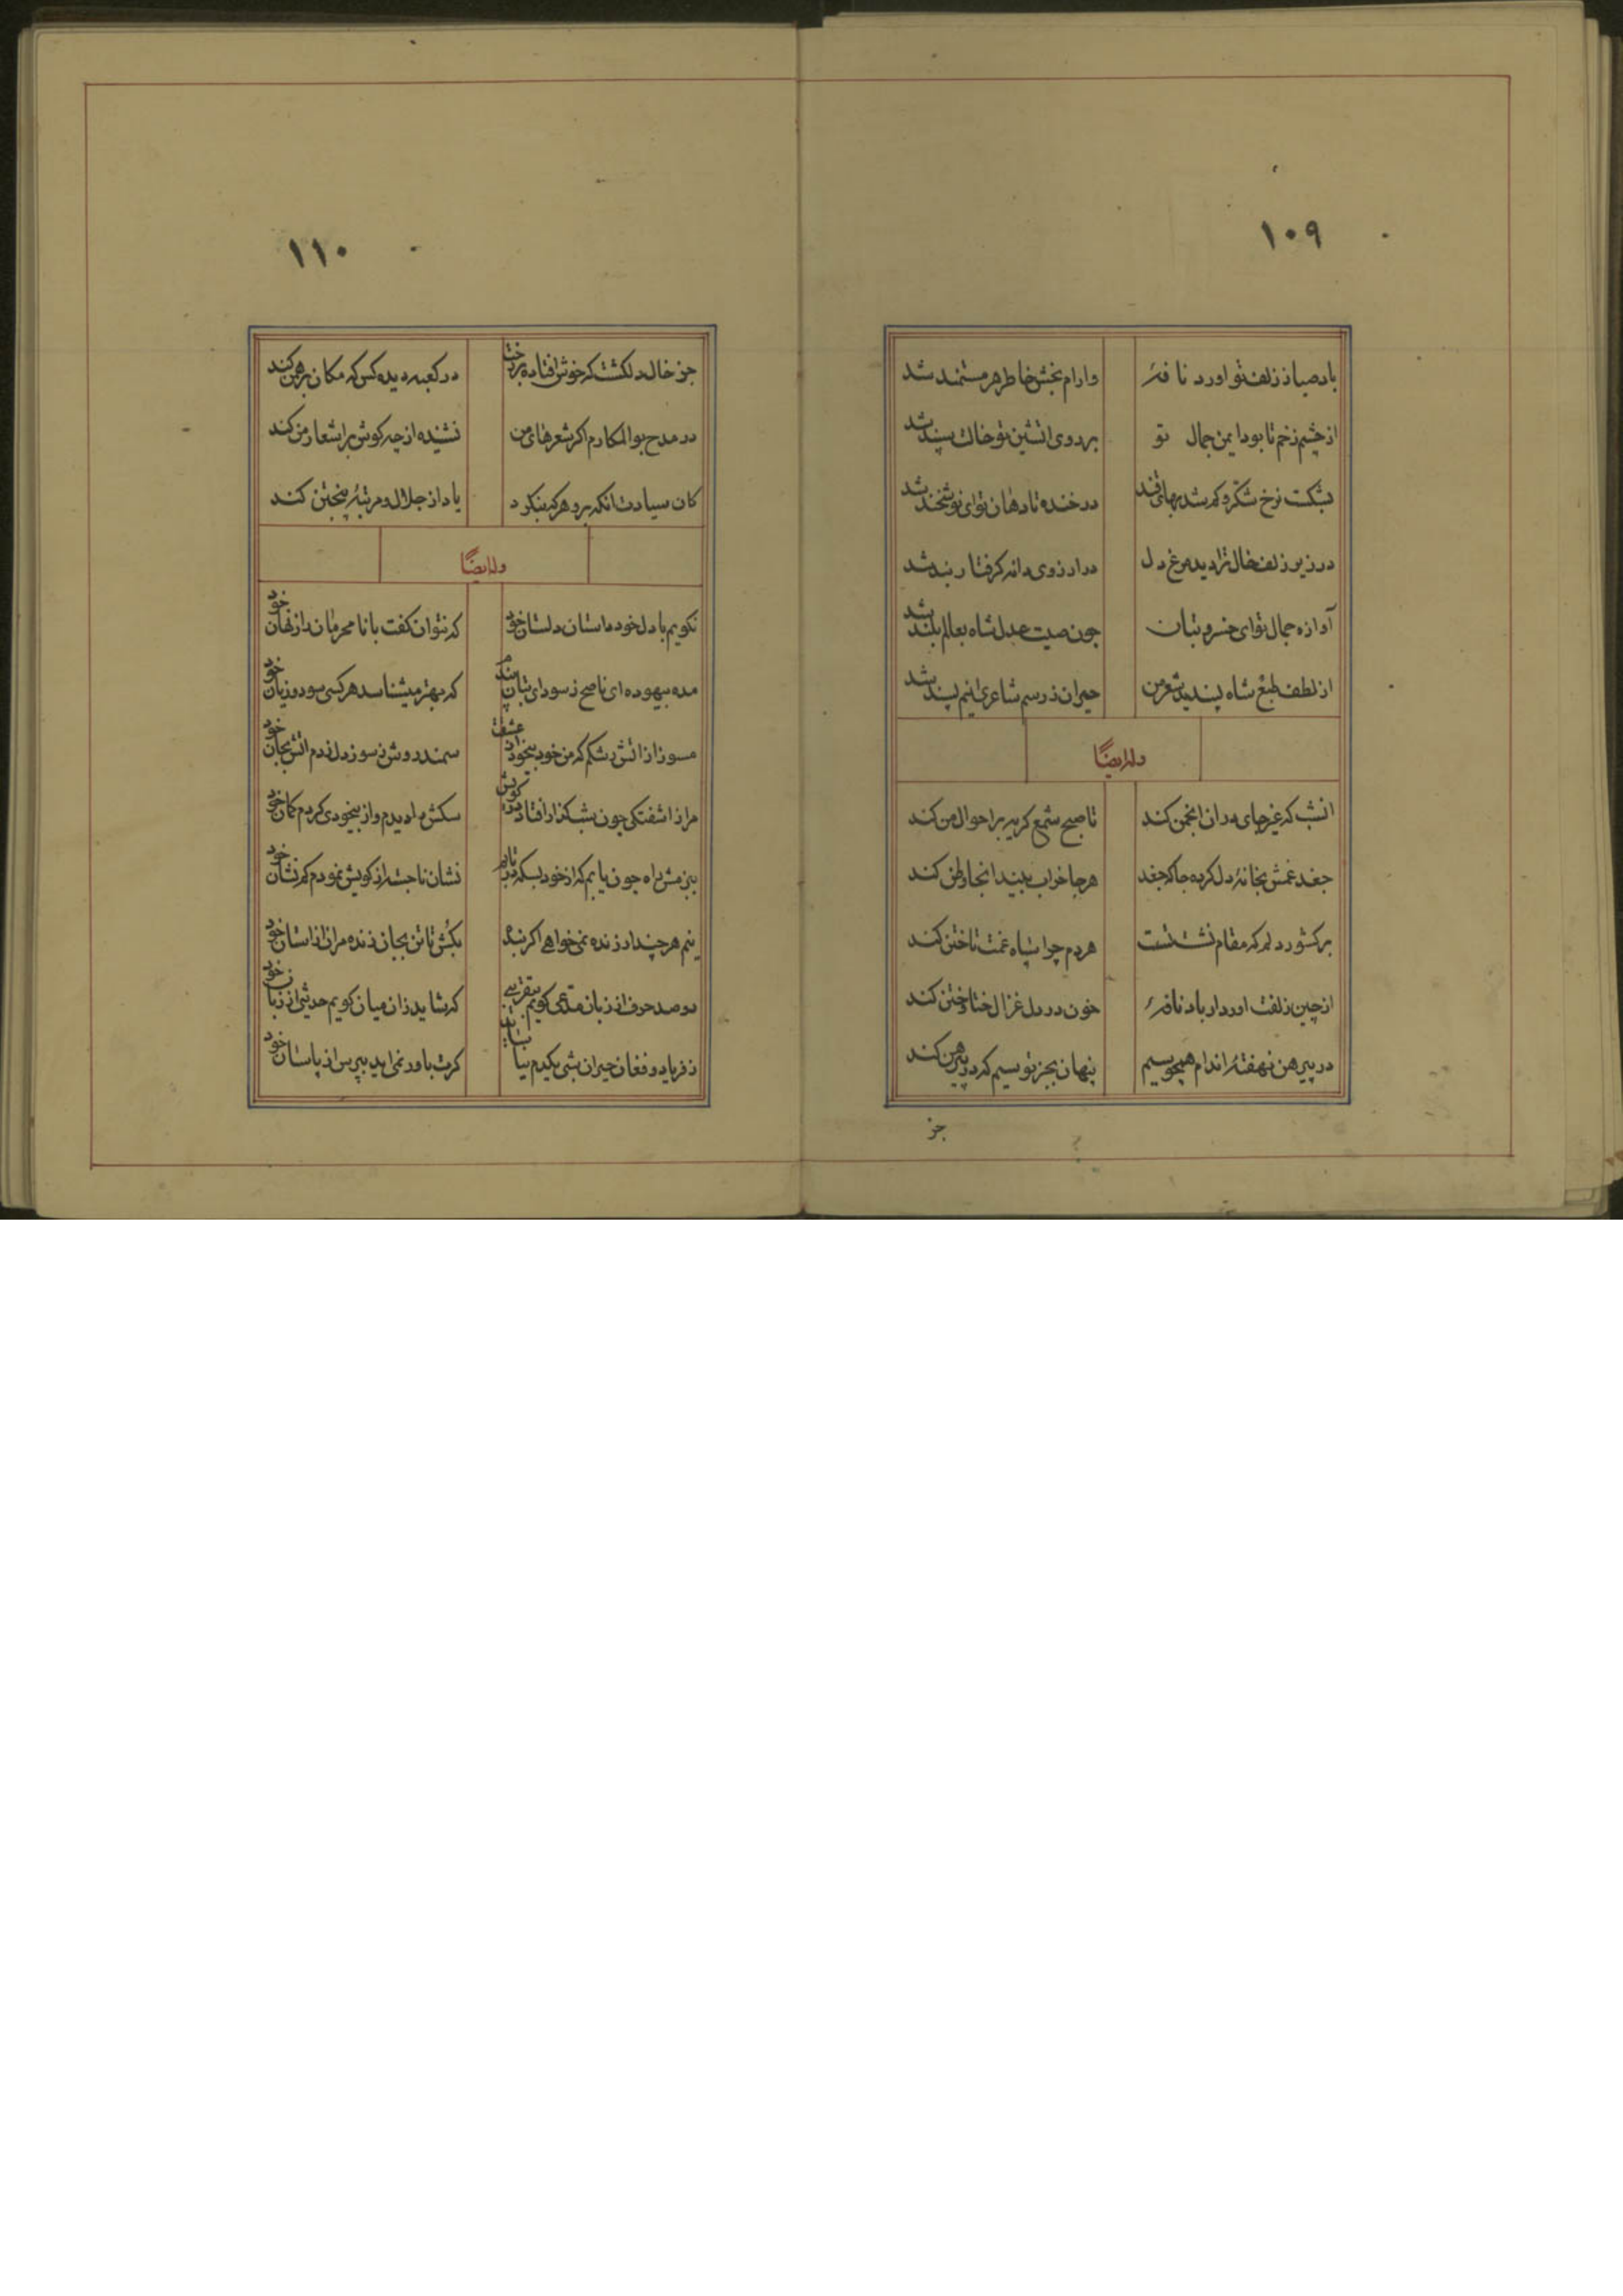 ١٠٩
باد صبا ز زلف تو اورد نافۀ
وارام بخش خاطر هر مستمند شد
از چشم زخم تا بود ایمن جمال تو
بر روی اتشین تو خالت سپند شد
بشکست نرخ شکر و کم شد بهای قند
در خنده تا دهان تو ای نوشخند شد
در زیر زلف خال ترا دید مرغ دل
در ارزوی دانه کرفتار بند شد
آوازه جمال تو ای خسرو بتان
چون صیت عدل شاه بعالم بلند شد
از لطف طبع شاه پسندید شعر من
حیران ز رسم شاعریانم پسند شد
وله ایضًا
انشب که غیر جای در ان انجمن کند
تا صبح شمع کریه بر احوال من کند
جغد غمش بخانۀ دل کرده جا که جغد
هر جا خراب بیند انجا وطن کند
بر کشور دلم که مقام نشست تست
هر دم چرا سپاه غمت تاختن کند
از چین زلفت اورد ار باد نافۀ
خون در دل غزال ختا و ختن کند
در پیرهن نهفتۀ اندام همچو سیم
پنهان بجز تو سیم که در پیرهن کند
جز
١١٠
جز خال دلکشت که خوش افتاده بر رخت
در کعبه دیده کس که مکان برهمن کند
در مدح بوالمکارم اکر شعرهای من
نشنیده از چه کوش بر اشعار من کند
کان سیادت انکه برو هر که بنکرد
یاد از جلال و مرتبۀ پنجتن کند
وله ایضًا
نکویم با دل خود داستان دلستان خود
که نتوان کفت با نامحرمان راز نهان خود
مده بیهوده ای ناصح ز سودای بتان پندم
که بهتر میشناسد هر کسی سود و زیان خود
مسوزان ز اتش رشکم که من خود بیخود از عشقت
سمندروش ز سوز دل زدم اتش بجان خود
مرا ز اشفتکی چون شب کذار افتاد در کویش
سکش را دیدم و از بیخودی کردم کمان خود
ببزمش راه چون یابم که از خود بسکه در تابم
نشان نا جسته از کویش نمودم کم نشان خود
نیم هر چند ار زنده نمی خواهی اکر بنده
بکش تا تن بجان زنده مران از استان خود
دو صد حرف از زبان مدعی کویم بتقریبی
که شاید زان میان کویم حدیثی از زبان خود
ز فریاد و فغان حیران شبی یکدم نیاساید
کرت باور نمی اید بپرس از پاسبان خود